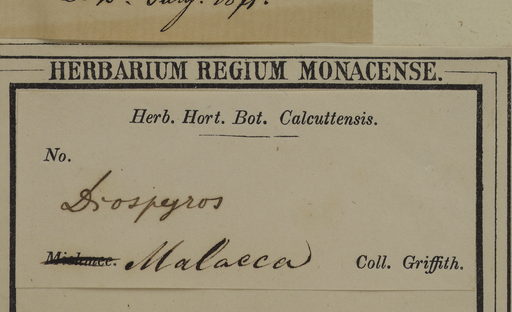 HERBARIUM REGIUM MONACENSE.
Herb. Hort. Bot. Calcuttensis.
No.
Diospyros
Mishmee. Malacca Coll. Griffith.